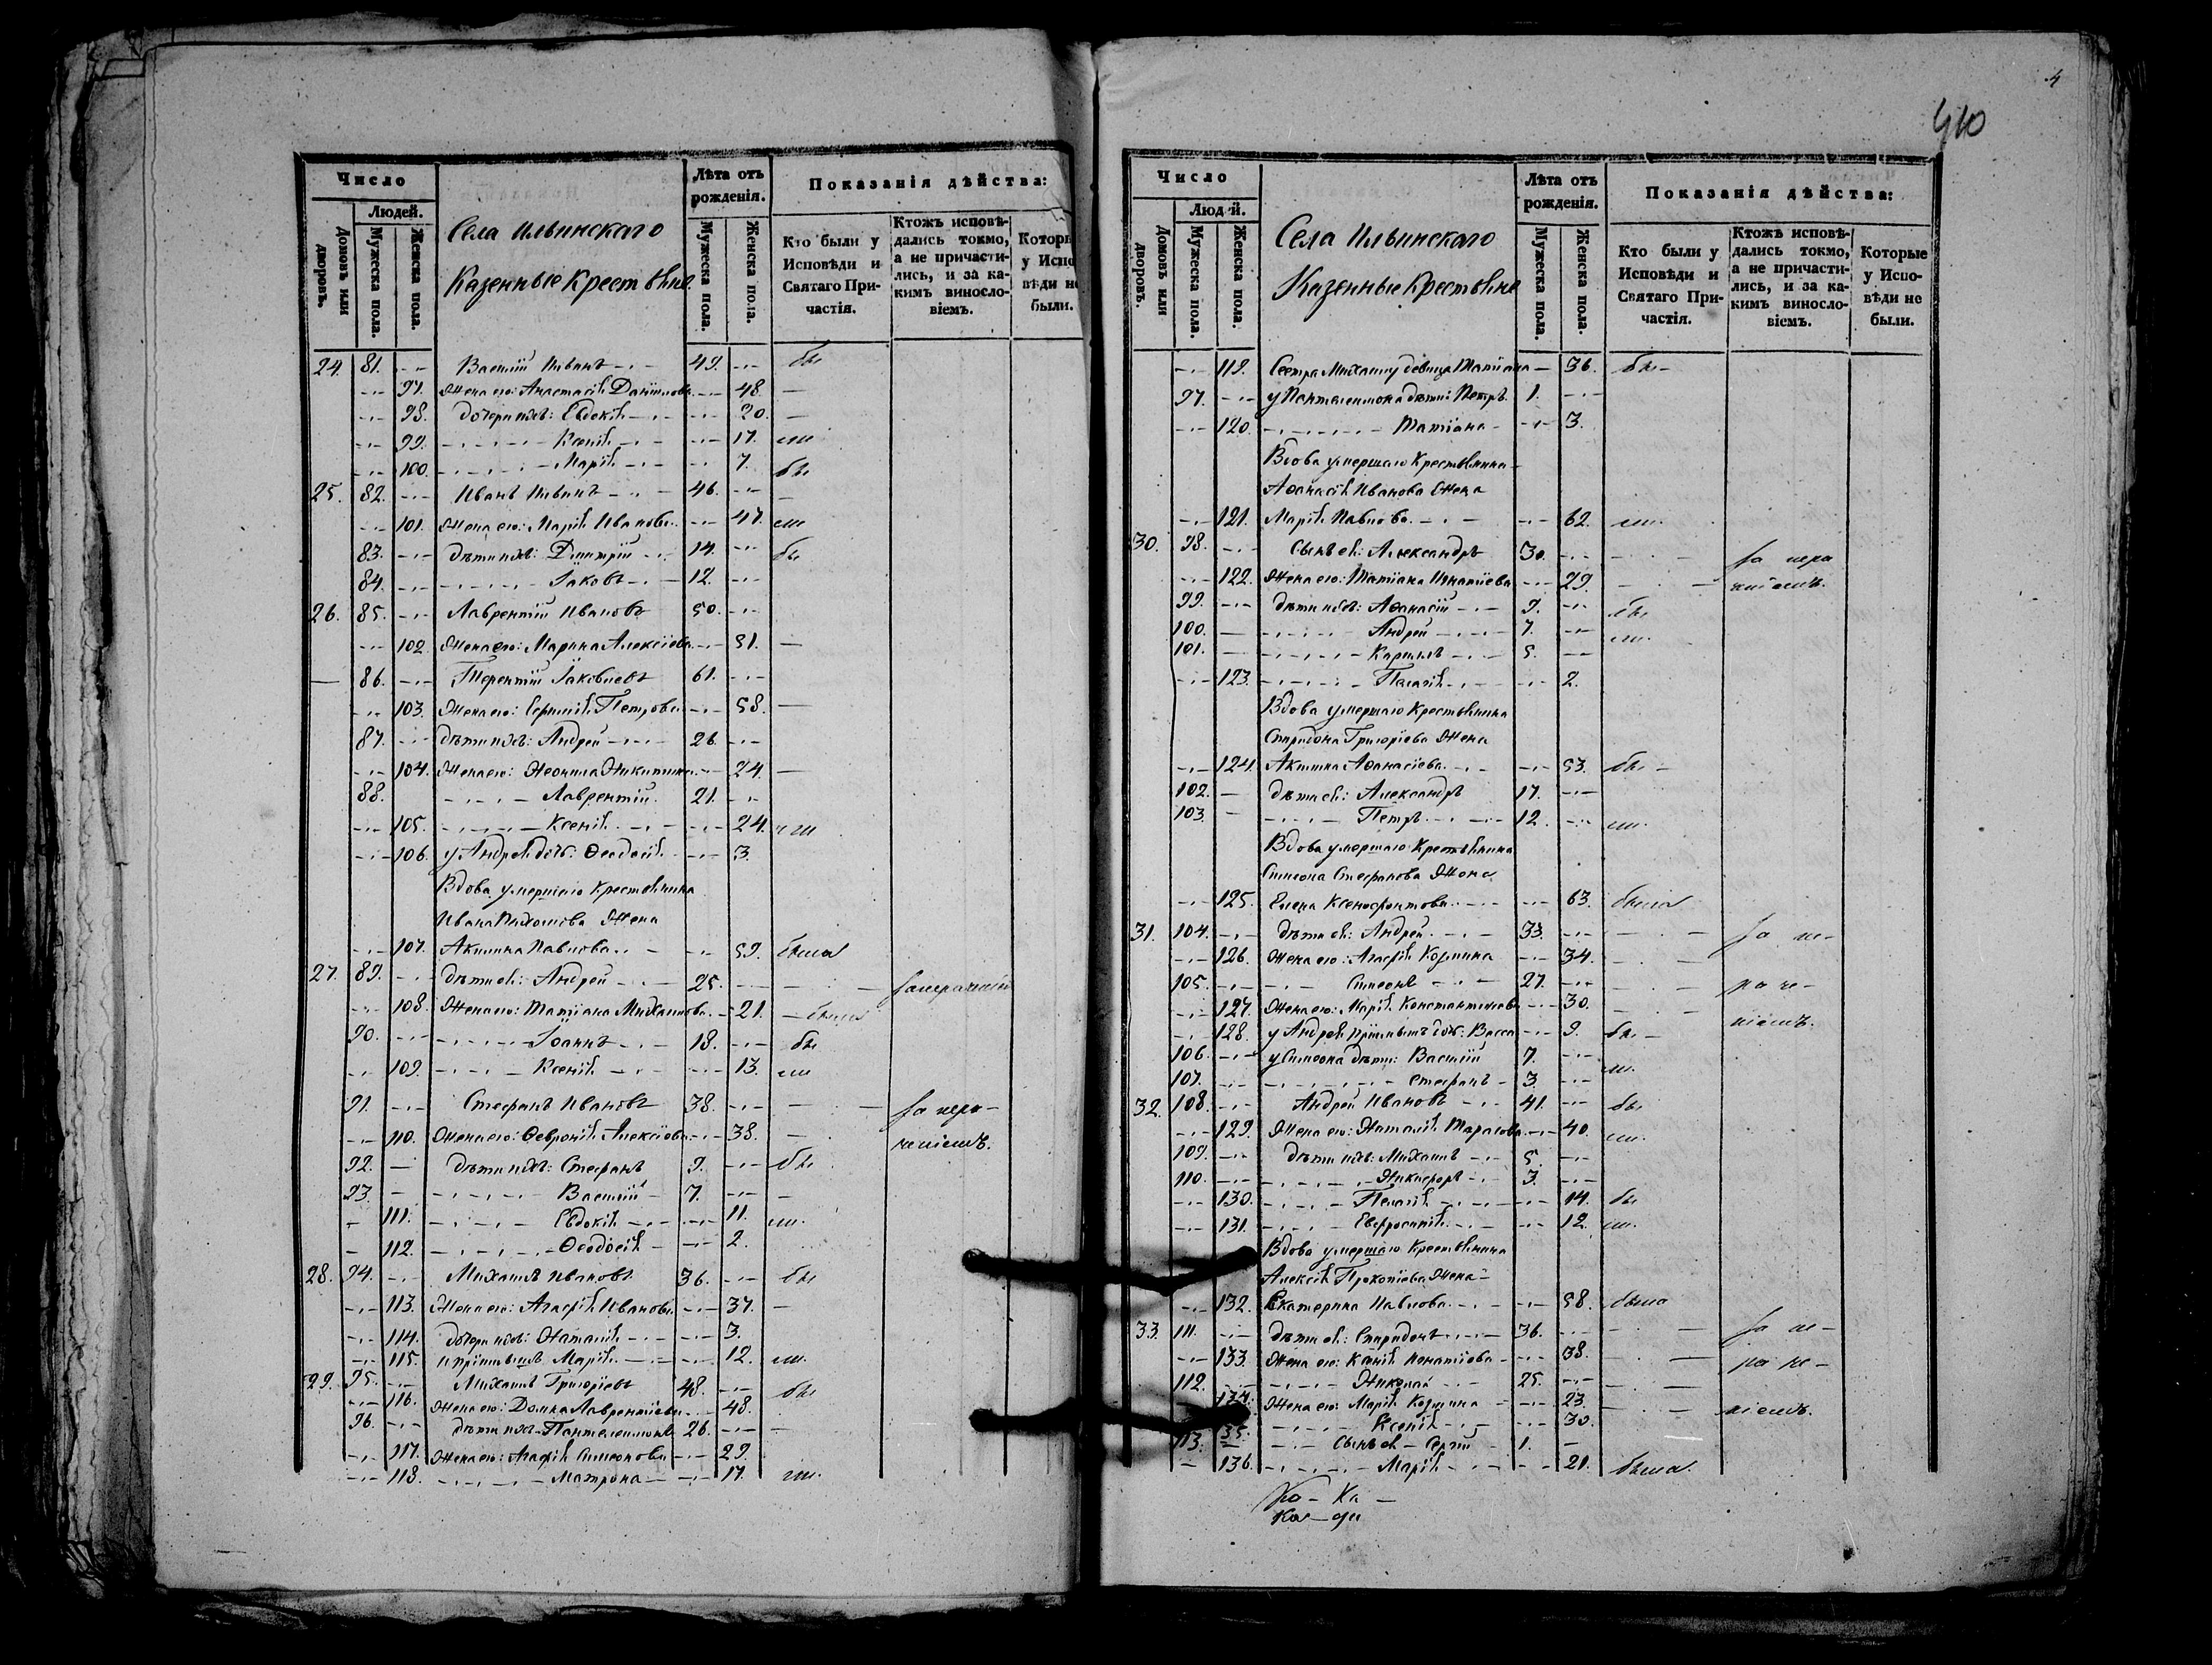 4
410
Число
Людей.
Домовъ или дворовъ.
Мужеска пола.
Женска пола.
Села Ильинскаго
Казенные Крестьяне
Лѣта отъ рожденія.
Мужеска пола.
Женска пола.
Показанія дѣйства:
Кто были у Исповѣди и Святаго Причастія.
Ктожъ исповѣдались токмо, а не причастились, и за какимъ винословіемъ.
Которы у Испо вѣди не были.
24. 81. Василій Ивановъ 49. бы
97. Жена его: Анастасія Даніилова 48.
98. дочери ихъ: Евдокія 20.
99. Ксенія 17. ли
100. Марія 7. бы
25. 82. Иванъ Ивановъ 46.
101. Жена его: Марія Иванова 47. ли
83. дѣти ихъ: Дмитрій 14. бы
84. Іаковъ 12.
26. 85. Лаврентій Ивановъ 50.
102. Жена его: Марина Алексіева 51.
86. Терентій Іаковлевъ 61.
103. Жена его: Петрова 58.
87. дѣти ихъ: Андрей 26.
104. Жена его: Неонила Никитина 24.
88. Лаврентій 21.
105. Ксенія 24. ли
106. у Андрея дочь: Ѳеодосія 3.
Вдова умершаго Крестьянина
Ивана Жена
107. Акилина Павлова 59. была
27. 89. дѣти ея: Андрей 25. за нераченіемъ
108. Жена его: Татіана Михаилова 21. была
90. Іоаннъ 18. бы
109. Ксенія 13. ли
91. Стефанъ Ивановъ 38. за нера-
110. Жена его: Ѳевронія Алексіева 38. ченіемъ.
92. дѣти ихъ: Стефанъ 9. бы
93. Василій 7.
111. Евдокія 11. ли.
112. Ѳеодосія 2.
28. 94. Михаилъ Ивановъ 36. бы
113. Жена его: Агафія Иванова 37.
114. дочери ихъ: Наталія 3.
115. и пріимышъ Марія 12. ли.
29. 95. Михаилъ Григоріевъ 48. бы
116. Жена его: Домна Лаврентіева 48.
96. дѣти ихъ: Пантелеимонъ 26.
117. Жена его: Агафія Симеонова 29.
118. Матрона 17. ли.
Число
Людей.
Домовъ или дворовъ.
Мужеска пола.
Женска пола.
Села Ильинскаго
Казенные Крестьяне
Лѣта отъ рожденія.
Мужеска пола.
Женска пола.
Показанія дѣйства:
Кто были у Исповѣди и Святаго Причастія.
Ктожъ исповѣдались токмо, а не причастились, и за какимъ винословіемъ.
Которые у Исповѣди не были.
119. Сестра Михаилу девица Татіана 36. бы
97. у Пантелеимона дѣти: Петръ 1.
120. Татіана 3.
Вдова умершаго Крестьянина
Аѳанасія Иванова Жена
121. Марія Павлова 62. ли.
30. 98. Сынъ ея: Александръ 30. за нера
122. Жена его: Татіана Игнатіева 29. ченіемъ.
99. дѣти ихъ: Аѳанасій 9. бы
100. Андрей 7. ли.
101. Кириллъ 5.
123. Пелагія 2.
Вдова умершаго Крестьянина
Спиридона Григоріева Жена
124. Акилина Аѳанасіева 53. бы
102. дѣти ея: Александръ 17.
103. Петръ 12. ли.
Вдова умершаго Крестьянина
Симеона Стефанова Жена
125. Елена Ксенофонтова 63. была
31. 104. дѣти ея: Андрей 33. за не-
126. Жена его: Агафія Козмина 34.
105. Симеонъ 27. ра че-
127. Жена его: Марія Константинова 30.
128. у Андрея пріимышъ дочь: Васса 9. бы ніемъ.
106. у Симеона дѣти: Василій 7.
107. Стефанъ 3. ли.
32. 108. Андрей Ивановъ 41. бы
129. Жена его: Наталія Тарасова 40. ли.
109. дѣти ихъ: Михаилъ 5.
110. Никифоръ 3.
130. Пелагія 14. бы
131. Евфросинія 12. ли.
Вдова умершаго Крестьянина
Алексія Прокопіева Жена
132. Екатерина Павлова 58. была
33. 111. дѣти ея: Спиридонъ 36. за не-
133. Жена его: Ксенія Игнатіева 38. ра че-
112. Николай 25.
134. Жена его: Марія Козмина 23. ніемъ.
135. Ксенія 30.
113. Сынъ ея Сергій 1.
136. Марія 21. была.